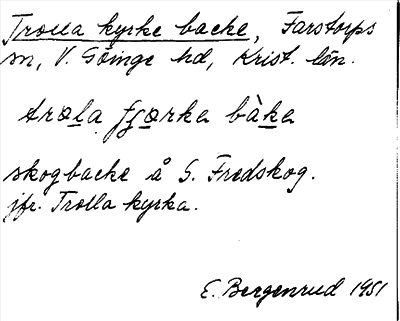 Trolla kyrke backe, Farstorps
sn, V. Göinge hd, Krist. län.
trola fjorka bàka
skogbacke å S. Fredskog.
jfr. Trolla kyrka.
E. Bergenrud 1951